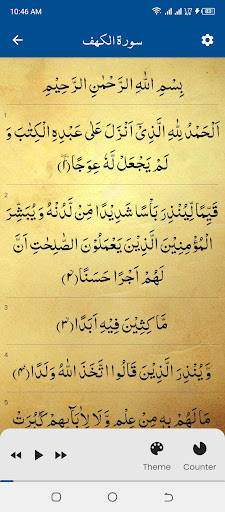 10:46 AM
سورة الكهف
بِسْمِ اللهِ الرَّحْمٰنِ الرَّحِيْمِ
اَلْحَمْدُ لِلّٰهِ الَّذِيْۤ اَنْزَلَ عَلٰى عَبْدِهِ الْكِتٰبَ وَ
لَمْ يَجْعَلْ لَّهٗ عِوَجًا ﴿۱﴾
2
قَيِّمًا لِّيُنْذِرَ بَاْسًا شَدِيْدًا مِّنْ لَّدُنْهُ وَ يُبَشِّرَ
الْمُؤْمِنِيْنَ الَّذِيْنَ يَعْمَلُوْنَ الصّٰلِحٰتِ اَنَّ
لَهُمْ اَجْرًا حَسَنًا ﴿۲﴾
3
مَّاكِثِيْنَ فِيْهِ اَبَدًا ﴿۳﴾
4
وَّ يُنْذِرَ الَّذِيْنَ قَالُوا اتَّخَذَ اللهُ وَلَدًا ﴿۴﴾
5
مَا لَهُمْ بِهٖ مِنْ عِلْمٍ وَّ لَا لِاٰبَآىِٕهِمْ كَبُرَتْ
Theme
Counter